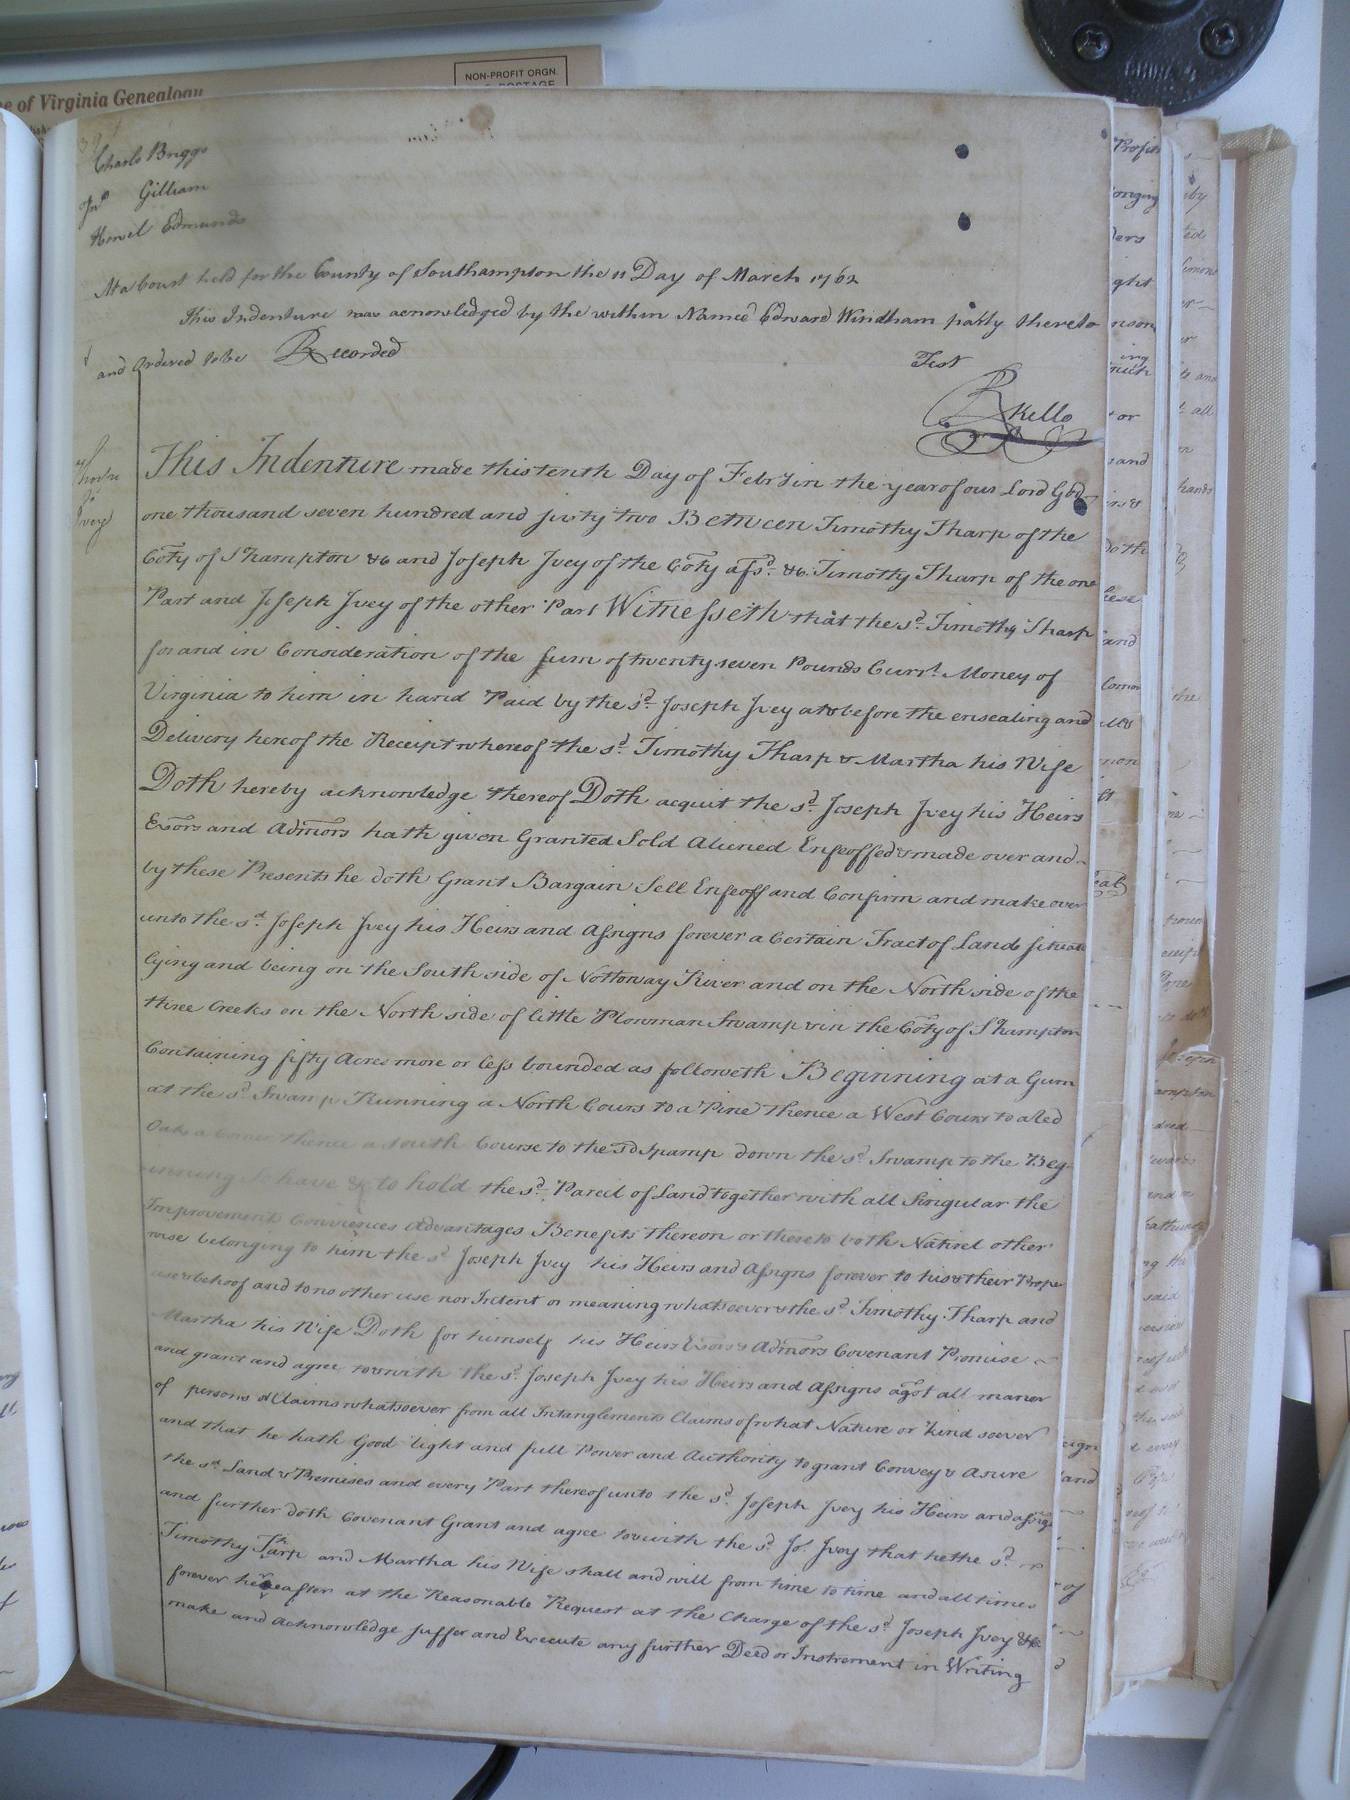 of Virginia Genealogy
NON-PROFIT ORGN.
POSTAGE
Charls Briggs
Jno Gilliam
Howel Edmunds
At a Court held for the County of Southampton the 11 Day of March 1762
This Indenture was acnowledged by the within Named Edward Windham party thereto
and Ordered to be Recorded
Test
R Kello
Tharp
To
Ivey
This Indenture made this tenth Day of Febry in the year of our Lord God
one thousand seven hundred and sixty two Between Timothy Tharp of the
Coty of S'hampton &c and Joseph Ivey of the Coty afsd. &c. Timothy Tharp of the one
Part and Joseph Ivey of the other Part Witnesseth that the sd. Timothy Tharp
for and in Consideration of the sum of twenty seven Pounds Currt. Money of
Virginia to him in hand Paid by the sd. Joseph Ivey at & before the ensealing and
Delivery hereof the Receipt whereof the sd. Timothy Tharp & Martha his Wife
Doth hereby acknowledge thereof Doth acquit the sd. Joseph Ivey his Heirs
Exors and Admors hath given Granted Sold Aliened Enfeoffed & made over and
by these Presents he doth Grant Bargain Sell Enfeoff and Confirm and make over
unto the sd. Joseph Ivey his Heirs and Assigns forever a Certain Tract of Land situate
lying and being on the South side of Nottoway River and on the North side of the
three Creeks on the North side of little Plowman Swamp & in the Coty of S'hampton
Containing fifty Acres more or less bounded as followeth Beginning at a Gum
at the sd. Swamp Running a North Cours to a Pine thence a West Cours to a Red
Oak a Corner thence a South Course to the sd Spamp down the sd. Swamp to the Beg-
inning To have & to hold the sd. Parcil of Land together with all Singular the
Improvement Conviences Advantages Benefits thereon or thereto both Natirel other
wise belonging to him the sd. Joseph Ivey his Heirs and Assigns forever to his & their Prope
use & behoof and to no other use nor Intent or meaning whatsoever & the sd. Timothy Tharp and
Martha his Wife Doth for himself his Heirs Exors & Admors Covenant Promise
and grant and agree to & with the sd. Joseph Ivey his Heirs and Assigns agst all maner
of persons & Claims whatsoever from all Intanglements Claims of what Nature or kind soever
and that he hath Good light and full Power and Authority to grant Convey & Asure
the sd. Land & Premises and every Part thereof unto the sd. Joseph Ivey his Heirs and assigs
and further doth Covenant Grant and agree to & with the sd. Jos. Ivey that he the sd.
Timothy Tharp and Martha his Wife shall and will from time to time and all times
forever hereafter at the Reasonable Request at the Charge of the sd. Joseph Ivey &c
make and Acknowledge suffer and Execute any further Deed or Instroment in Writing